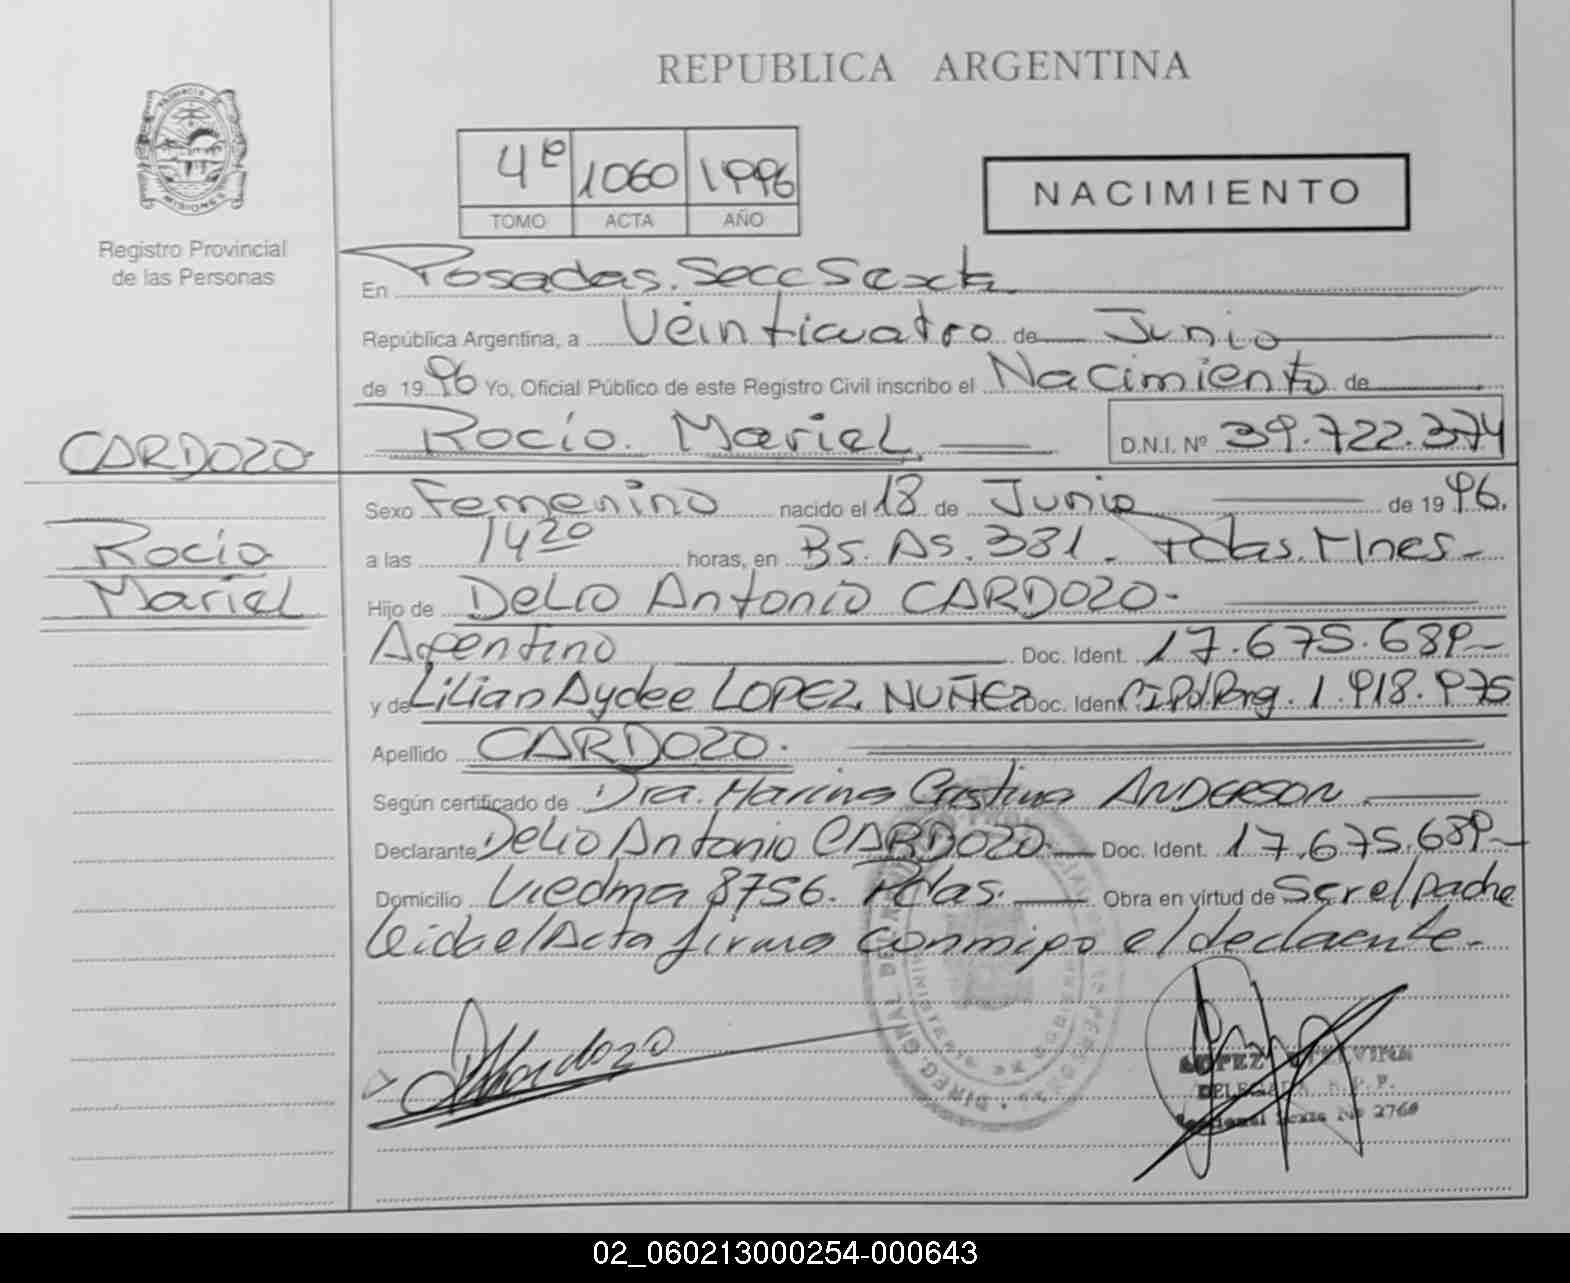 REPUBLICA ARGENTINA
PROVINCIA DE
MISIONES
Registro Provincial
de las Personas
4º 1060 1996
TOMO ACTA AÑO
NACIMIENTO
En Posadas. Secc Sexta
República Argentina, a Veinticuatro de Junio
de 1996 Yo, Oficial Público de este Registro Civil inscribo el Nacimiento de
CARDOZO Rocío. Mariel D.N.I. Nº 39.722.374
Rocío
Mariel
Sexo Femenino nacido el 18 de Junio de 1996.
a las 1420 horas, en Bs. As. 381. Pdas. Mnes-
Hijo de Delio Antonio CARDOZO-
Argentino Doc. Ident. 17.675.689-
y de Lilian Aydee LOPEZ NUÑEZ Doc. Ident C.I.Pol.Prg. 1.918.975
Apellido CARDOZO.
Según certificado de Dra. Marina Cristina ANDERSON
Declarante Delio Antonio CARDOZO- Doc. Ident. 17.675.689-
Domicilio Viedma 8756. Pdas. Obra en virtud de Ser el padre
leida el Acta firma conmigo el declarente-
DIREC. GRAL DEL
MINISTERIO DE GOBIERNO
LOPEZ
DELEGADA R.P.P.
Seccional Sexta Nº 2760
02_060213000254-000643